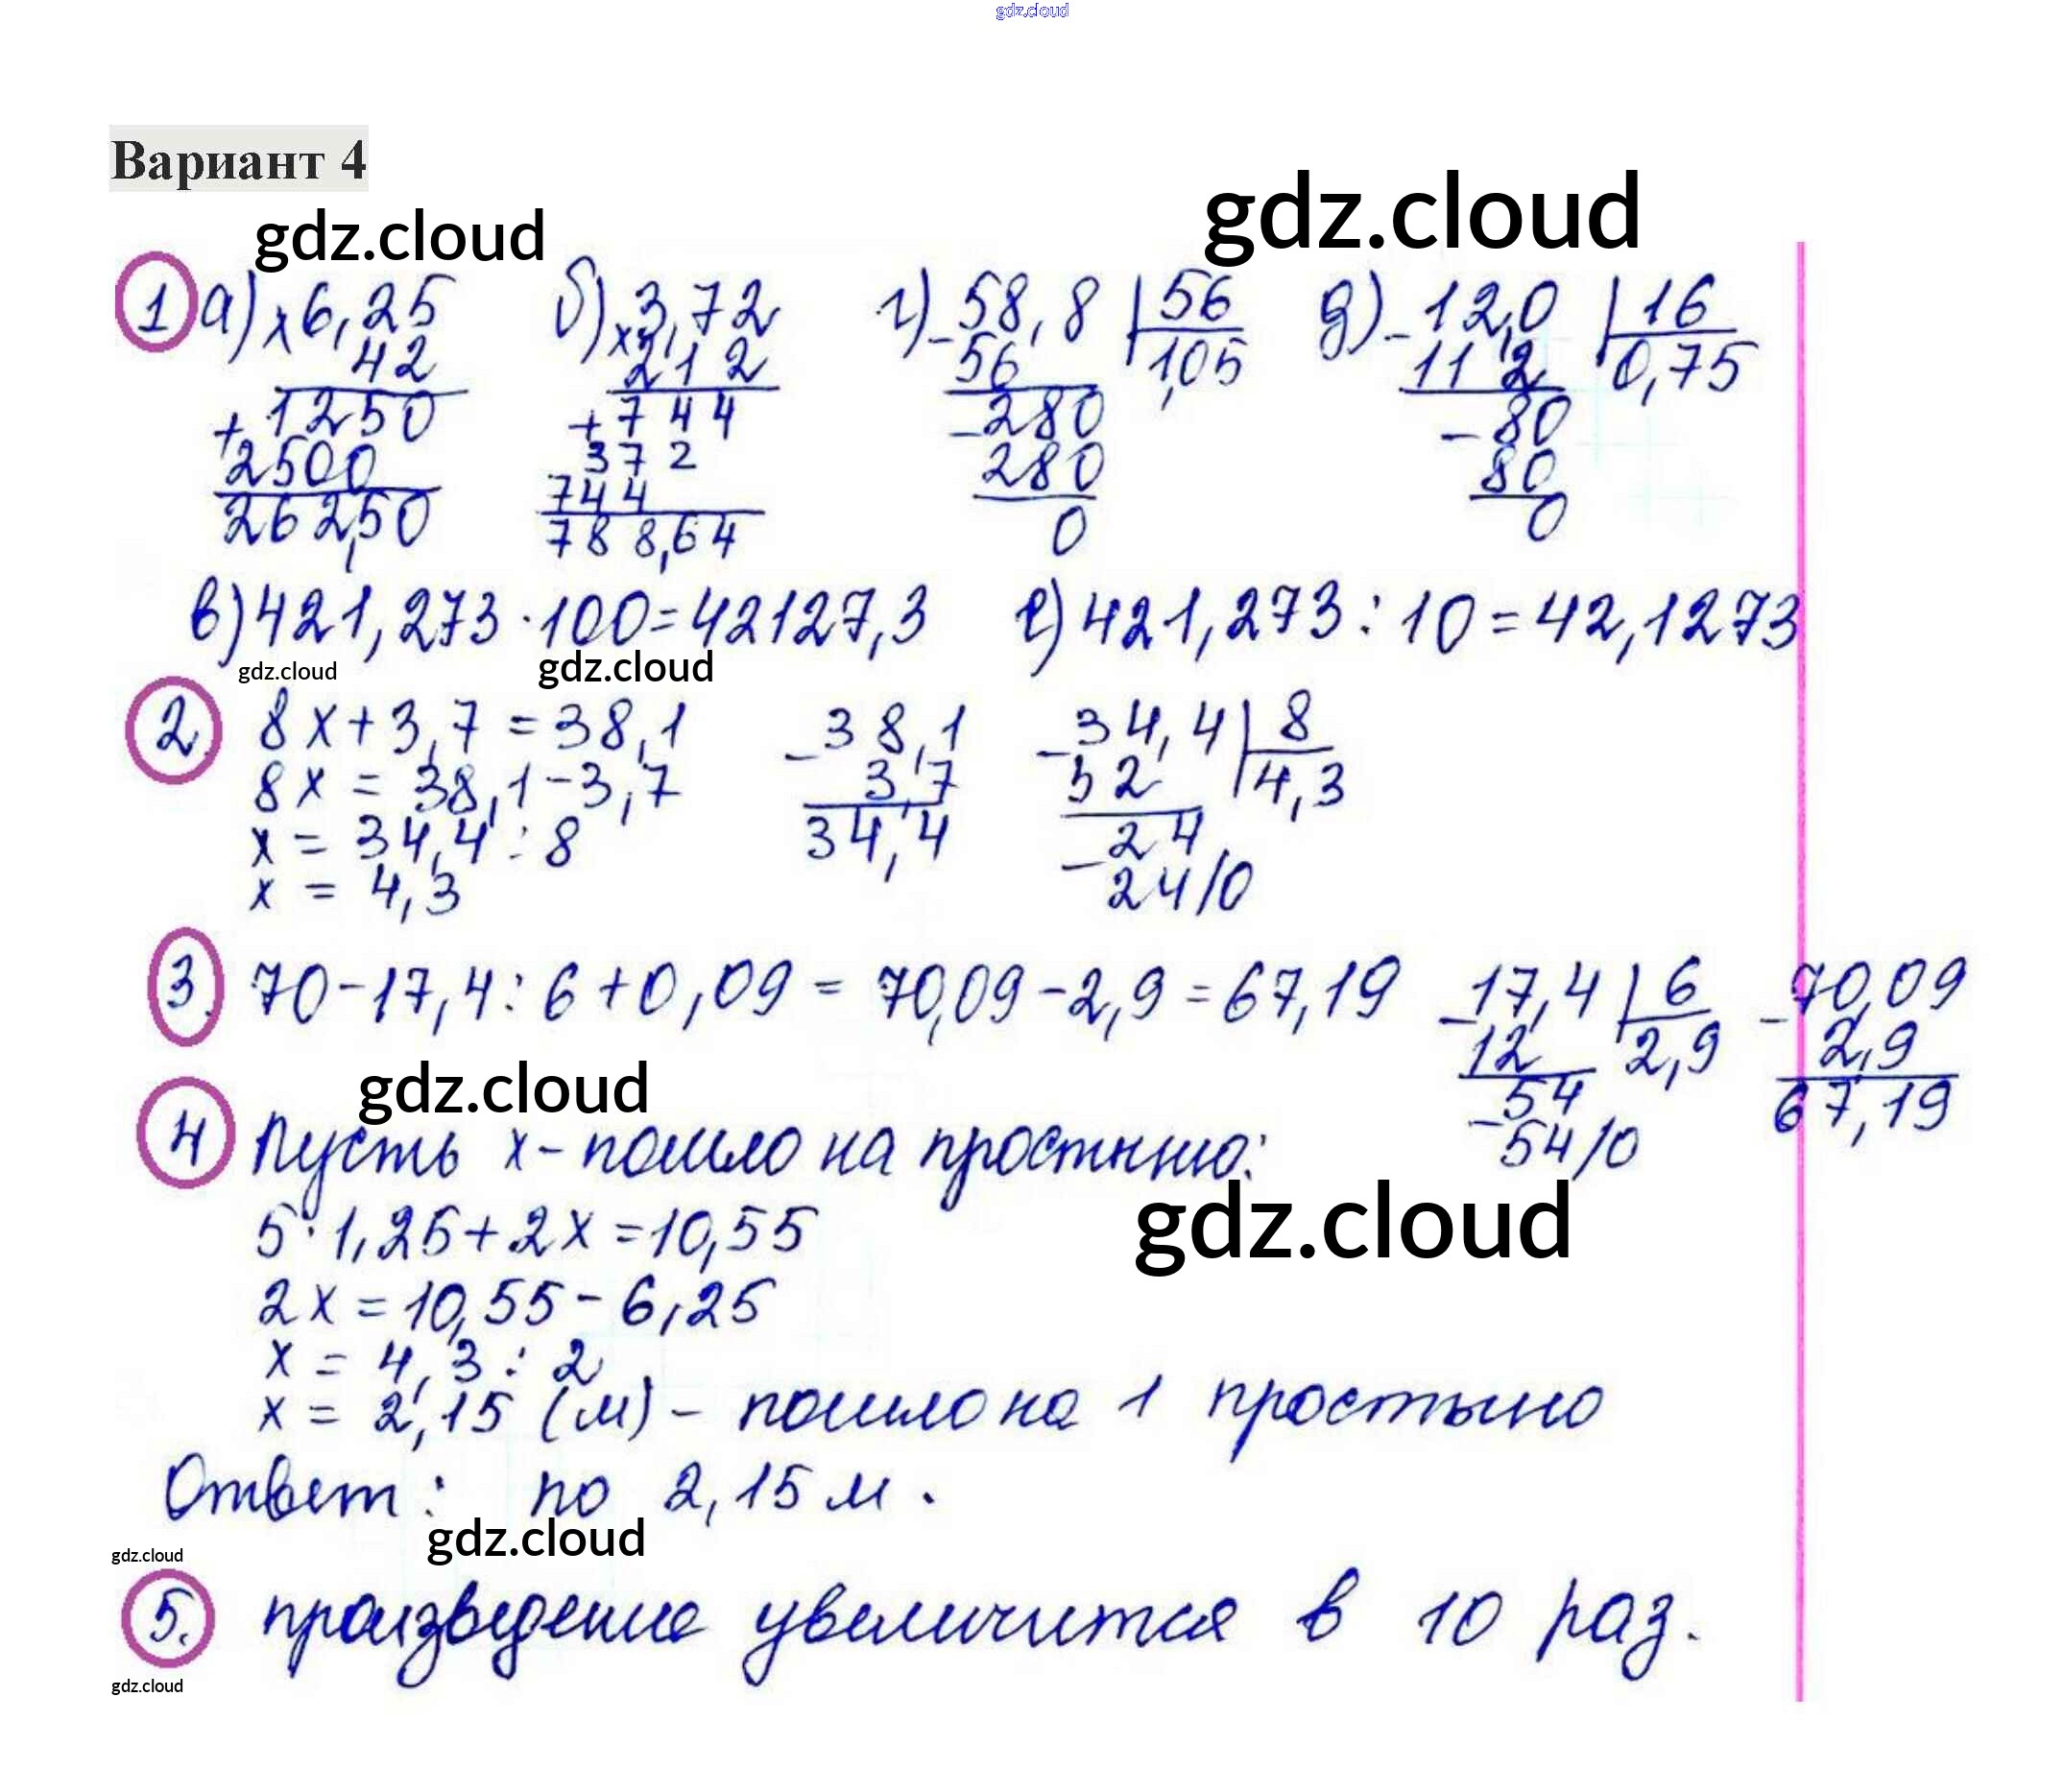 gdz.cloud
Вариант 4
gdz.cloud
gdz.cloud
1 а) × 6,25 б) × 3,72 г) - 58,8 | 56 д) - 12,0 | 16
42 212 56 1,05 11 2 0,75
+ 1250 + 744 - 280 - 80
2500 372 280 80
262,50 744 0 0
788,64
в) 421,273 · 100 = 42127,3 е) 421,273 : 10 = 42,1273
gdz.cloud gdz.cloud
2. 8x + 3,7 = 38,1 - 38,1 - 34,4 | 8
8x = 38,1 - 3,7 3,7 32 4,3
x = 34,4 : 8 34,4 - 24
x = 4,3 24/0
3. 70 - 17,4 : 6 + 0,09 = 70,09 - 2,9 = 67,19 - 17,4 | 6 - 70,09
12 2,9 2,9
- 54 67,19
54/0
gdz.cloud
4 Пусть x - пошло на простыню:
gdz.cloud
5 · 1,25 + 2x = 10,55
2x = 10,55 - 6,25
x = 4,3 : 2
x = 2,15 (м) - пошло на 1 простыню
Ответ: по 2,15 м.
gdz.cloud
gdz.cloud
5. произведение увеличится в 10 раз.
gdz.cloud